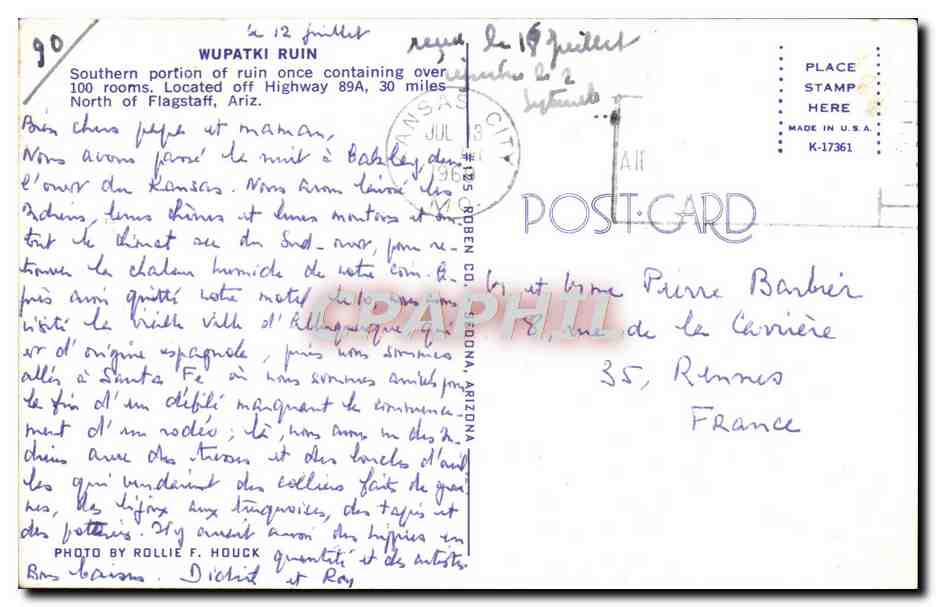 90
le 12 juillet
WUPATKI RUIN
Southern portion of ruin once containing over
100 rooms. Located off Highway 89A, 30 miles
North of Flagstaff, Ariz.
Bien chers pépé et maman,
Nous avons passé la nuit à Oakley, dans
l'ouest du Kansas. Nous avons laissé les
Indiens, leurs chèvres et leurs moutons et sur-
tout le climat sec du Sud-ouest, pour re-
trouver la chaleur humide de notre coin. A-
près avoir quitté notre motel le 10 nous avons
visité la vieille ville d'Albuquerque, qui
est d'origine espagnole, puis nous sommes
allés à Santa Fe où nous sommes arrivés pour
la fin d'un défilé marquant le commence-
ment d'un rodéo; là, nous avons vu des In-
diens avec des tresses et des boucles d'oreil
les qui vendaient des colliers faits de grai
nes, des bijoux aux turquoises, des tapis et
des potteries. Il y avait aussi des hippies en
PHOTO BY ROLLIE F. HOUCK
quantité et des artistes.
Bons baisers. et Roy
reçue le 18 juillet
le 2
Septembre
KANSAS CITY
JUL 13
196
MO.
AIR
#125 ROBEN CO. SEDONA, ARIZONA
PLACE
STAMP
HERE
MADE IN U.S.A.
K-17361
POST-CARD
CPAPHIL
Mr et Mme Pierre Barbier
8, rue de la Carrière
35, Rennes
France